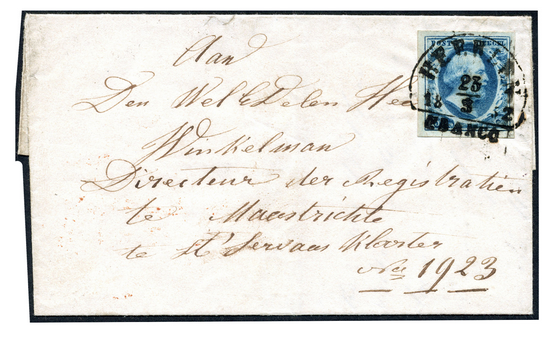 Aan
Den Wel Edelen Hee
Winkelman
Directeur der Registratien
te Maastricht
te St Servaas Klooster
No 1923
POST
23
3
FRANCO